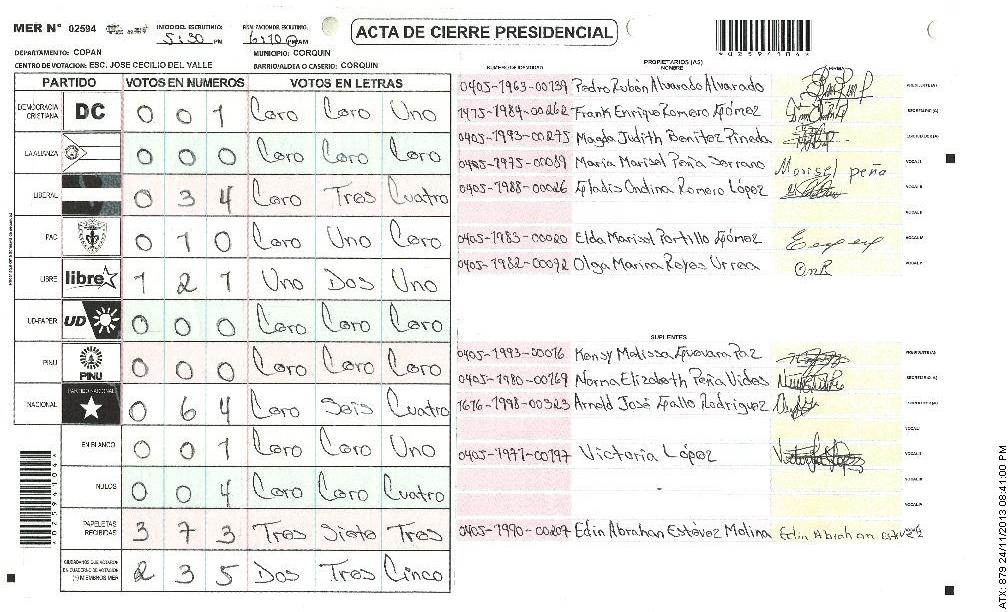 MER N° 02594
INICIO DEL ESCRUTINIO: 5:30 PM
FINALIZACION DEL ESCRUTINIO: 6:10 PM AM
ACTA DE CIERRE PRESIDENCIAL
*02594104*
DEPARTAMENTO: COPAN
MUNICIPIO: CORQUIN
CENTRO DE VOTACION: ESC. JOSE CECILIO DEL VALLE
BARRIO/ALDEA O CASERIO: CORQUIN
PARTIDO VOTOS EN NUMEROS VOTOS EN LETRAS
DEMOCRACIA CRISTIANA DC 0 0 1 Cero Cero Uno
LA ALIANZA 0 0 0 Cero Cero Cero
LIBERAL 0 3 4 Cero Tres Cuatro
PAC 0 1 0 Cero Uno Cero
LIBRE libre 1 2 1 Uno Dos Uno
UD-FAPER UD 0 0 0 Cero Cero Cero
PINU PINU 0 0 0 Cero Cero Cero
NACIONAL PARTIDO NACIONAL 0 6 4 Cero Seis Cuatro
EN BLANCO 0 0 1 Cero Cero Uno
NULOS 0 0 4 Cero Cero Cuatro
PAPELETAS RECIBIDAS 3 7 3 Tres Siete Tres
CIUDADANOS QUE VOTARON EN CUADERNO DE VOTACION (+) MIEMBROS MER 2 3 5 Dos Tres Cinco
*02594104*
PROPIETARIOS (AS)
NUMERO DE IDENTIDAD NOMBRE FIRMA
0405-1963-00139 Pedro Rubén Alvarado Alvarado PRESIDENTE(A)
1475-1984-00262 Frank Enrique Romero Gómez SECRETARIO (A)
0405-1993-00275 Magda Judith Benitez Pineda
0405-1975-00089 Maria Marisel Peña Serrano Marisel peña VOCAL I
0405-1988-00026 Gladis Ondina Romero López VOCAL II
VOCAL III
0405-1983-00020 Elda Marisel Portillo Gómez VOCAL IV
0405-1982-00092 Olga Marina Reyes Urrea OmR VOCAL V
SUPLENTES
0405-1993-00016 Kensy Melissa Guevara Paz PRESIDENTE(A)
0405-1980-00169 Norna Elizabeth Peña Vides SECRETARIO (A)
1616-1998-00323 Arnold José Gallo Rodriguez
VOCAL I
0405-1971-00197 Victoria López VOCAL II
VOCAL III
VOCAL IV
0405-1990-00207 Edin Abrahan Estévez Molina Edin Abrahan
ATX: 879 24/11/2013 08:41:00 PM